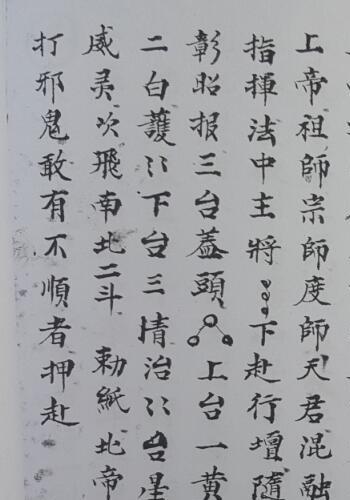 上帝祖師宗師度師天君混融
指揮法中主將下赴行壇隨
彰昭报三台蓋頭上台一黄
二白護〻下台三情治〻台星
威灵次飛南北二斗 勅紙北帝
打邪鬼敢有不順者押赴